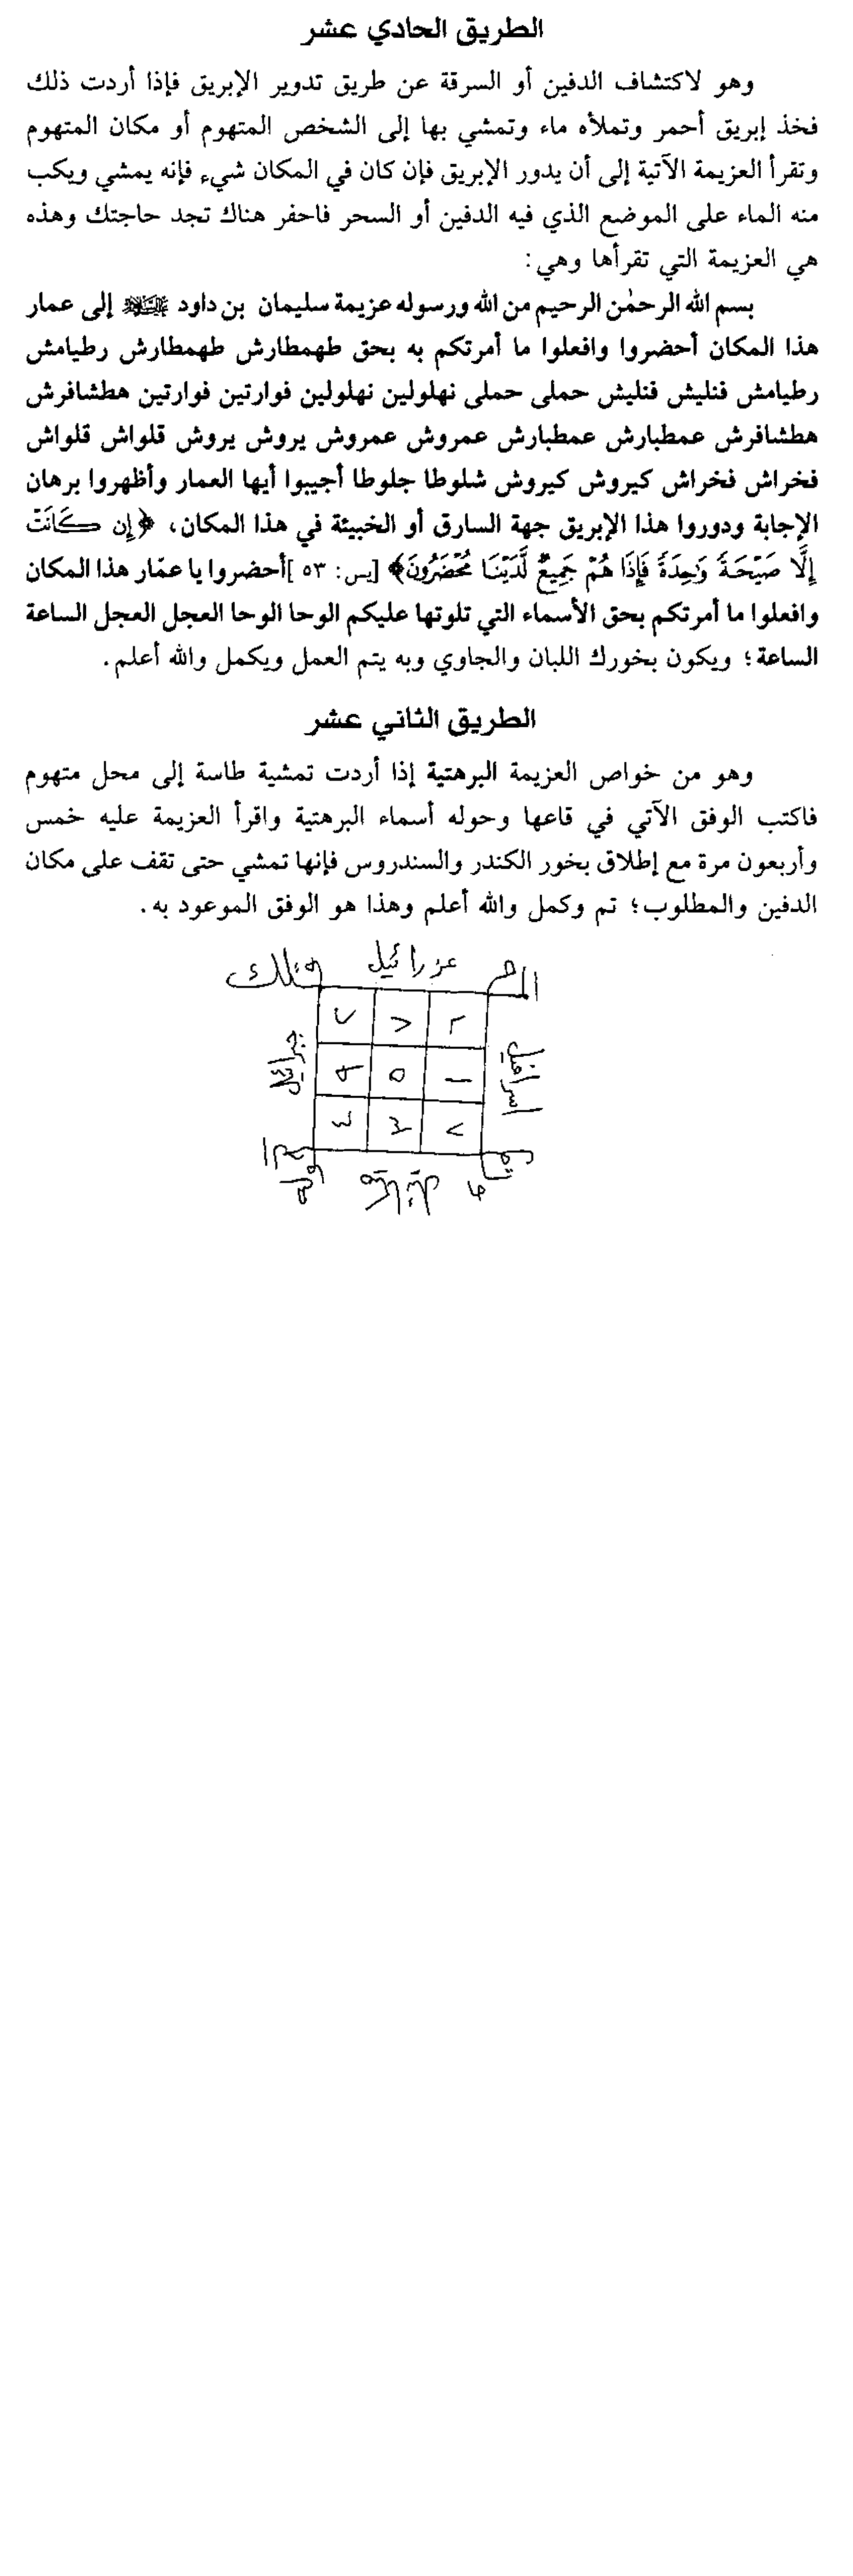 الطريق الحادي عشر
وهو لاكتشاف الدفين أو السرقة عن طريق تدوير الإبريق فإذا أردت ذلك
فخذ إبريق أحمر وتملأه ماء وتمشي بها إلى الشخص المتهوم أو مكان المتهوم
وتقرأ العزيمة الآتية إلى أن يدور الإبريق فإن كان في المكان شيء فإنه يمشي ويكب
منه الماء على الموضع الذي فيه الدفين أو السحر فاحفر هناك تجد حاجتك وهذه
هي العزيمة التي تقرأها وهي:
بسم الله الرحمٰن الرحيم من الله ورسوله عزيمة سليمان بن داود إلى عمار
هذا المكان أحضروا وافعلوا ما أمرتكم به بحق طهمطارش طهمطارش رطيامش
رطيامش فنليش فنليش حملى حملى نهلولين نهلولين فوارتين فوارتين هطشافرش
هطشافرش عمطبارش عمطبارش عمروش عمروش يروش يروش قلواش قلواش
فخراش فخراش كيروش كيروش شلوطا جلوطا أجيبوا أيها العمار وأظهروا برهان
الإجابة ودوروا هذا الإبريق جهة السارق أو الخبيئة في هذا المكان، ﴿إِن كَانَتْ
إِلَّا صَيْحَةً وَٰحِدَةً فَإِذَا هُمْ جَمِيعٌ لَّدَيْنَا مُحْضَرُونَ﴾ [يس: ٥٣] أحضروا يا عمّار هذا المكان
وافعلوا ما أمرتكم بحق الأسماء التي تلوتها عليكم الوحا الوحا العجل العجل الساعة
الساعة؛ ويكون بخورك اللبان والجاوي وبه يتم العمل ويكمل والله أعلم.
الطريق الثاني عشر
وهو من خواص العزيمة البرهتية إذا أردت تمشية طاسة إلى محل متهوم
فاكتب الوفق الآتي في قاعها وحوله أسماء البرهتية واقرأ العزيمة عليه خمس
وأربعون مرة مع إطلاق بخور الكندر والسندروس فإنها تمشي حتى تقف على مكان
الدفين والمطلوب؛ تم وكمل والله أعلم وهذا هو الوفق الموعود به.
عزرائيل
اسرافيل
جبرائيل